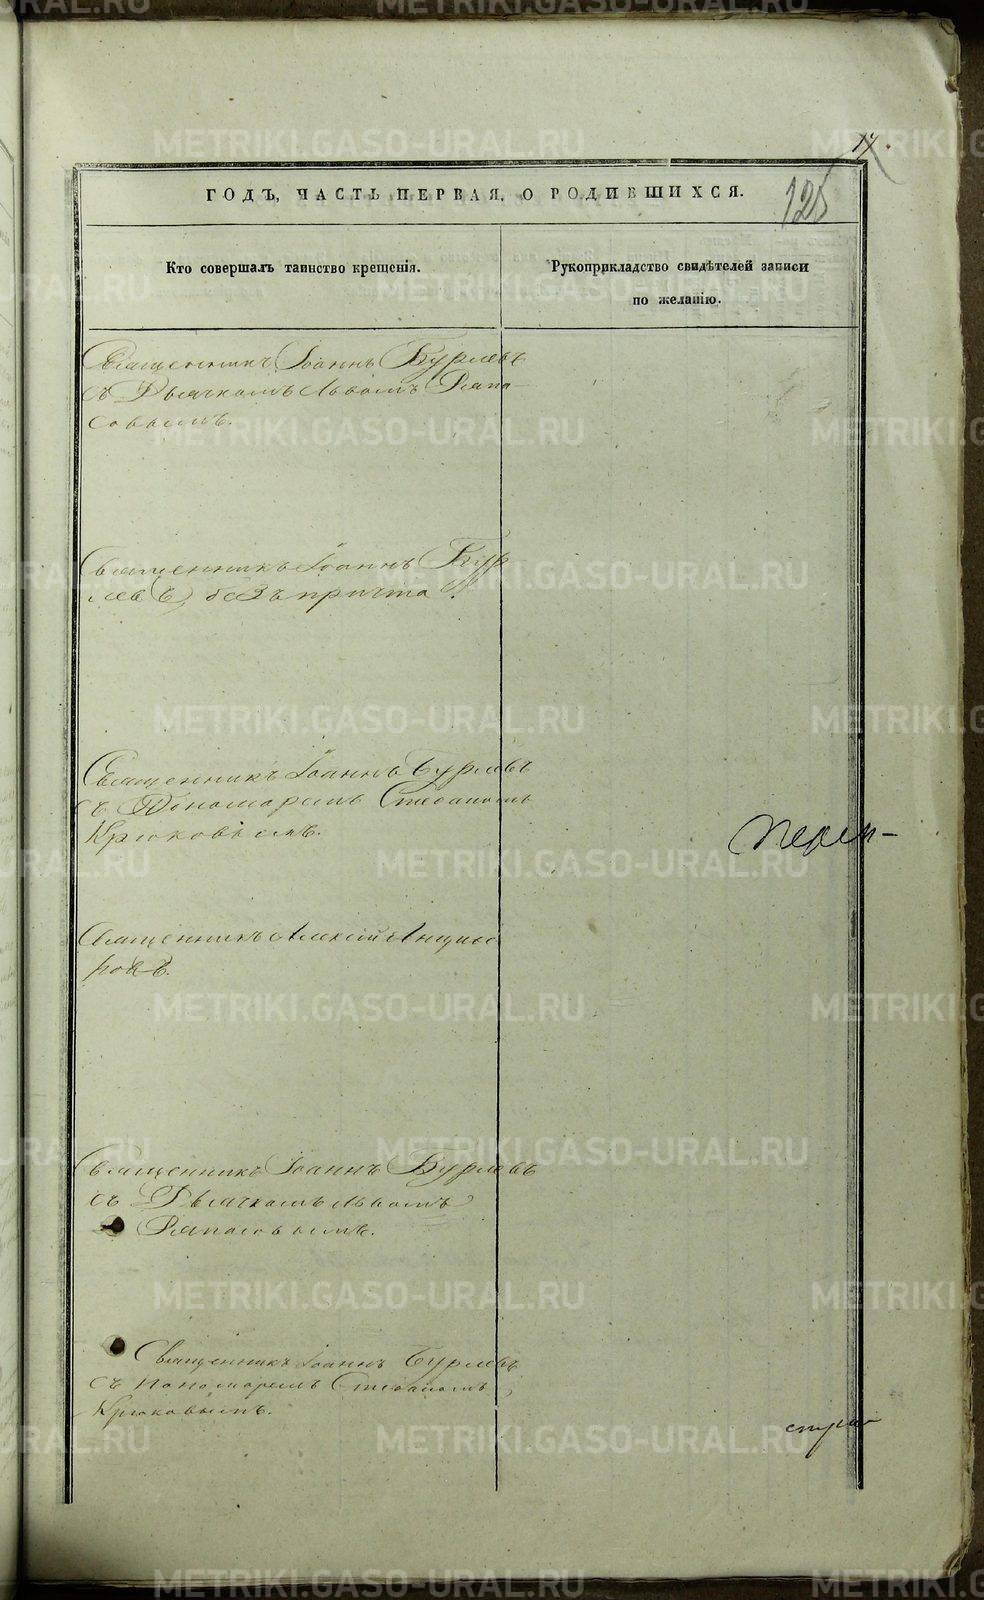 17.
125
ГОДЪ, ЧАСТЬ ПЕРВАЯ, О РОДИВШИХСЯ.
Кто совершалъ таинство крещенія.
Рукоприкладство свидѣтелей записи
по желанію.
Священникъ Іоаннъ Бурлевъ
съ Дьячкомъ Львомъ Рапо-
совымъ.
Священникъ Іоаннъ Бур
левъ, безъ причта.
Священникъ Іоаннъ Бурлевъ
съ Пономаремъ Стефаномъ
Крюковымъ.
Священникъ Алексій Анцыфе
ровъ.
Священникъ Іоаннъ Бурлевъ
съ Дьячкомъ Львомъ
Рапосовымъ.
Священникъ Іоаннъ Бурлевъ
съ пономаремъ Стефаномъ
Крюковымъ.
METRIKI.GASO-URAL.RU